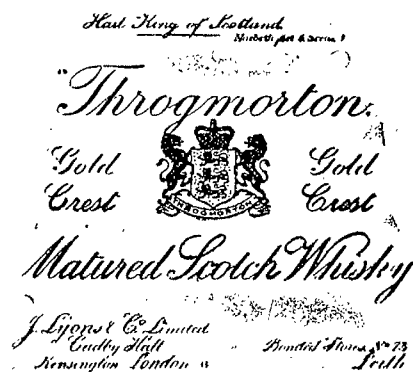 Hail King of Scotland
Macbeth Act 5 Scene
"Throgmorton."
Gold Gold
Crest Crest
THROGMORTON
Matured Scotch Whisky
J. Lyons & Co. Limited
Cadby Hall
Kensington London
Bonded Stores No 73
Leith